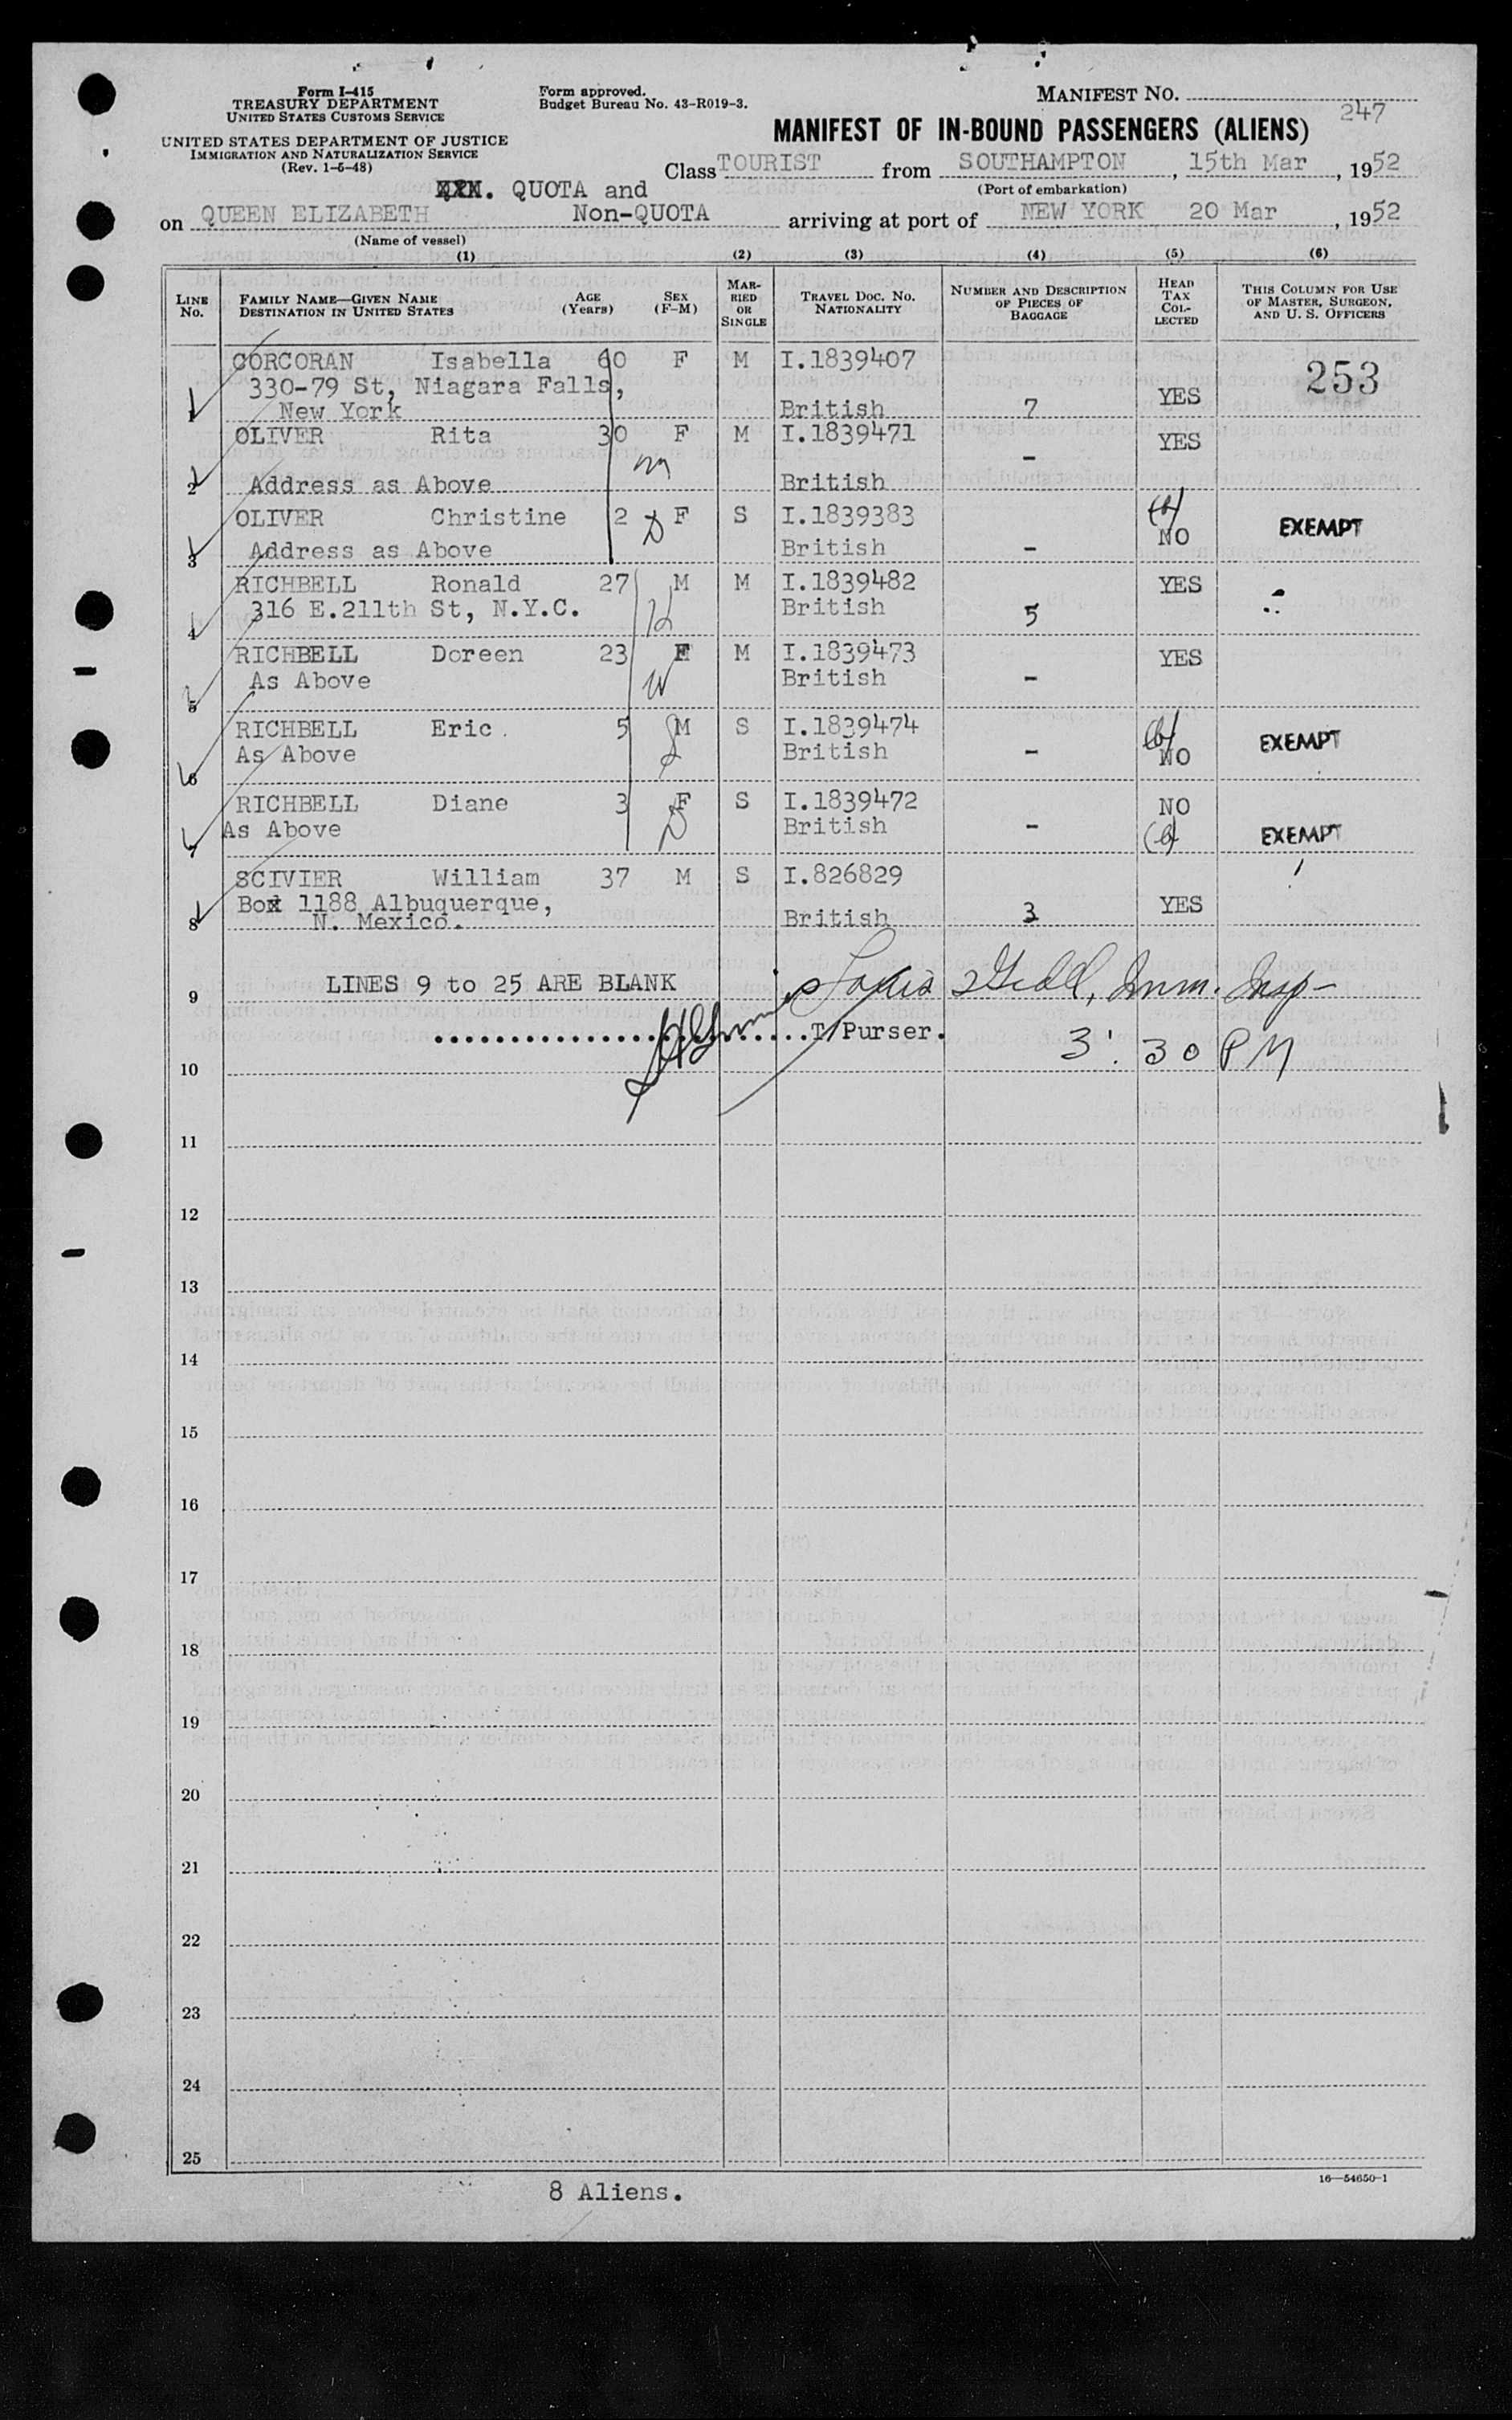 Form I-415
TREASURY DEPARTMENT
UNITED STATES CUSTOMS SERVICE
UNITED STATES DEPARTMENT OF JUSTICE
IMMIGRATION AND NATURALIZATION SERVICE
(Rev. 1-5-48)
Form approved.
Budget Bureau No. 43-R019-3.
MANIFEST NO.
247
MANIFEST OF IN-BOUND PASSENGERS (ALIENS)
Class TOURIST from SOUTHAMPTON, 15th Mar, 1952
(Port of embarkation)
QUOTA and
on QUEEN ELIZABETH Non-QUOTA arriving at port of NEW YORK 20 Mar, 1952
(Name of vessel)
(1) (2) (3) (4) (5) (6)
LINE No. FAMILY NAME—GIVEN NAME DESTINATION IN UNITED STATES AGE (Years) SEX (F-M) MARRIED OR SINGLE TRAVEL DOC. NO. NATIONALITY NUMBER AND DESCRIPTION OF PIECES OF BAGGAGE HEAD TAX COLLECTED THIS COLUMN FOR USE OF MASTER, SURGEON, AND U. S. OFFICERS
CORCORAN Isabella 60 F M I.1839407 253
330-79 St, Niagara Falls,
1 New York British 7 YES
OLIVER Rita 30 F M I.1839471 YES
m -
2 Address as Above British
OLIVER Christine 2 D F S I.1839383 NO EXEMPT
3 Address as Above British -
RICHBELL Ronald 27 M M I.1839482 YES
4 316 E.211th St, N.Y.C. H British 5
RICHBELL Doreen 23 F M I.1839473 YES
5 As Above W British -
RICHBELL Eric. 5 M S I.1839474 (b) EXEMPT
6 As Above S British - NO
RICHBELL Diane 3 F S I.1839472 NO
7 As Above D British - (b) EXEMPT
SCIVIER William 37 M S I.826829
8 Box 1188 Albuquerque, British 3 YES
N. Mexico.
9 LINES 9 to 25 ARE BLANK Louis Imm. Insp-
T/Purser. 3:30 PM
10
11
12
13
14
15
16
17
18
19
20
21
22
23
24
25
16—54650-1
8 Aliens.